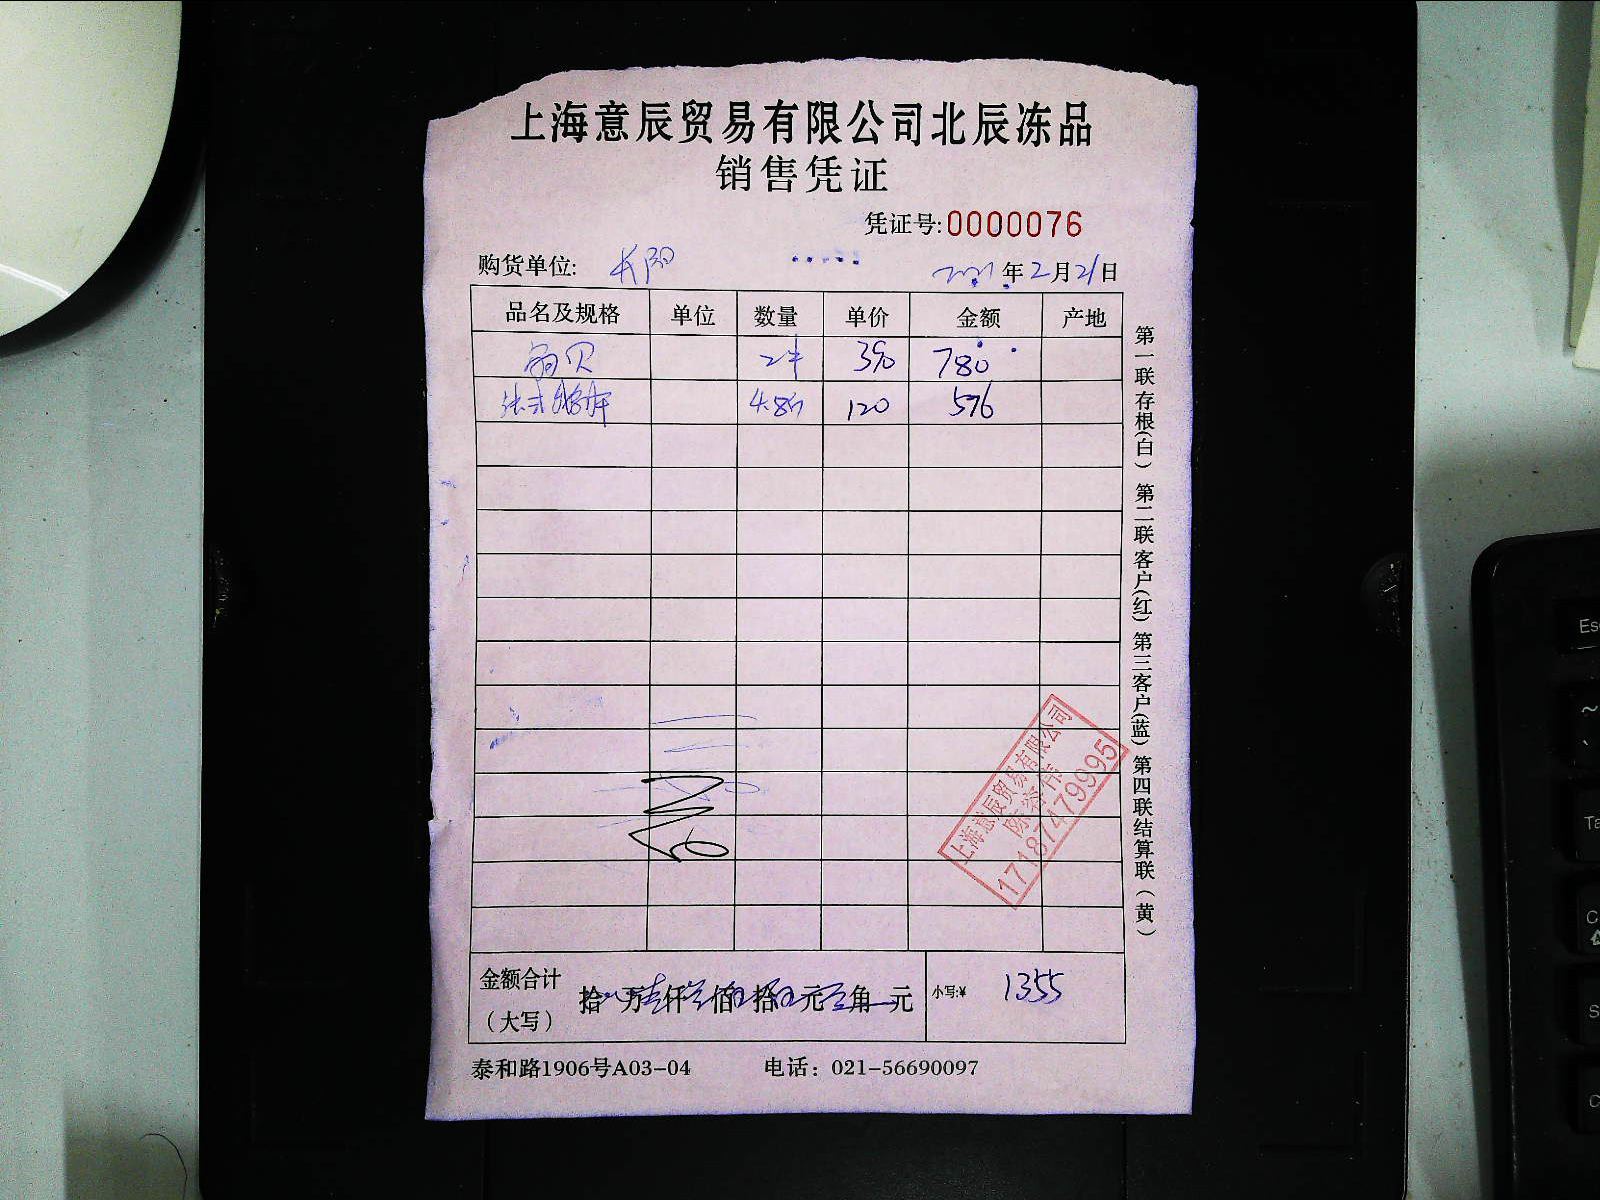 上海意辰贸易有限公司北辰冻品
销售凭证
凭证号:0000076
购货单位: 长阳 2021年2月21日
品名及规格 单位 数量 单价 金额 产地
贝 2件 390 780
法式 4.8斤 120 576
金额合计(大写) 拾 万 仟 佰 拾 元 角 元 小写:¥ 1355
泰和路1906号A03-04 电话：021-56690097
第一联存根(白) 第二联客户(红) 第三客户(蓝) 第四联结算联(黄)
上海意辰贸易有限公司
17187479995
Esc
~